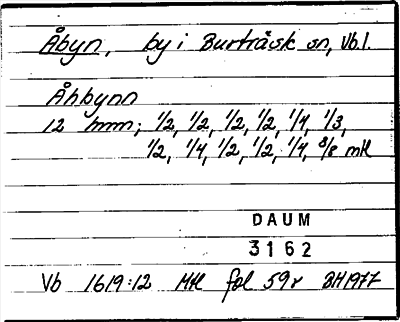 Åbyn, by i Burträsk sn, Vb.l.
Åhbynn
12 mmn; 1/2, 1/2, 1/2, 1/2, 1/4, 1/3,
1/2, 1/4, 1/2, 1/2, 1/4, 3/8 mtl
DAUM
3162
Vb 1619:12 Mtl fol 59r BH1977